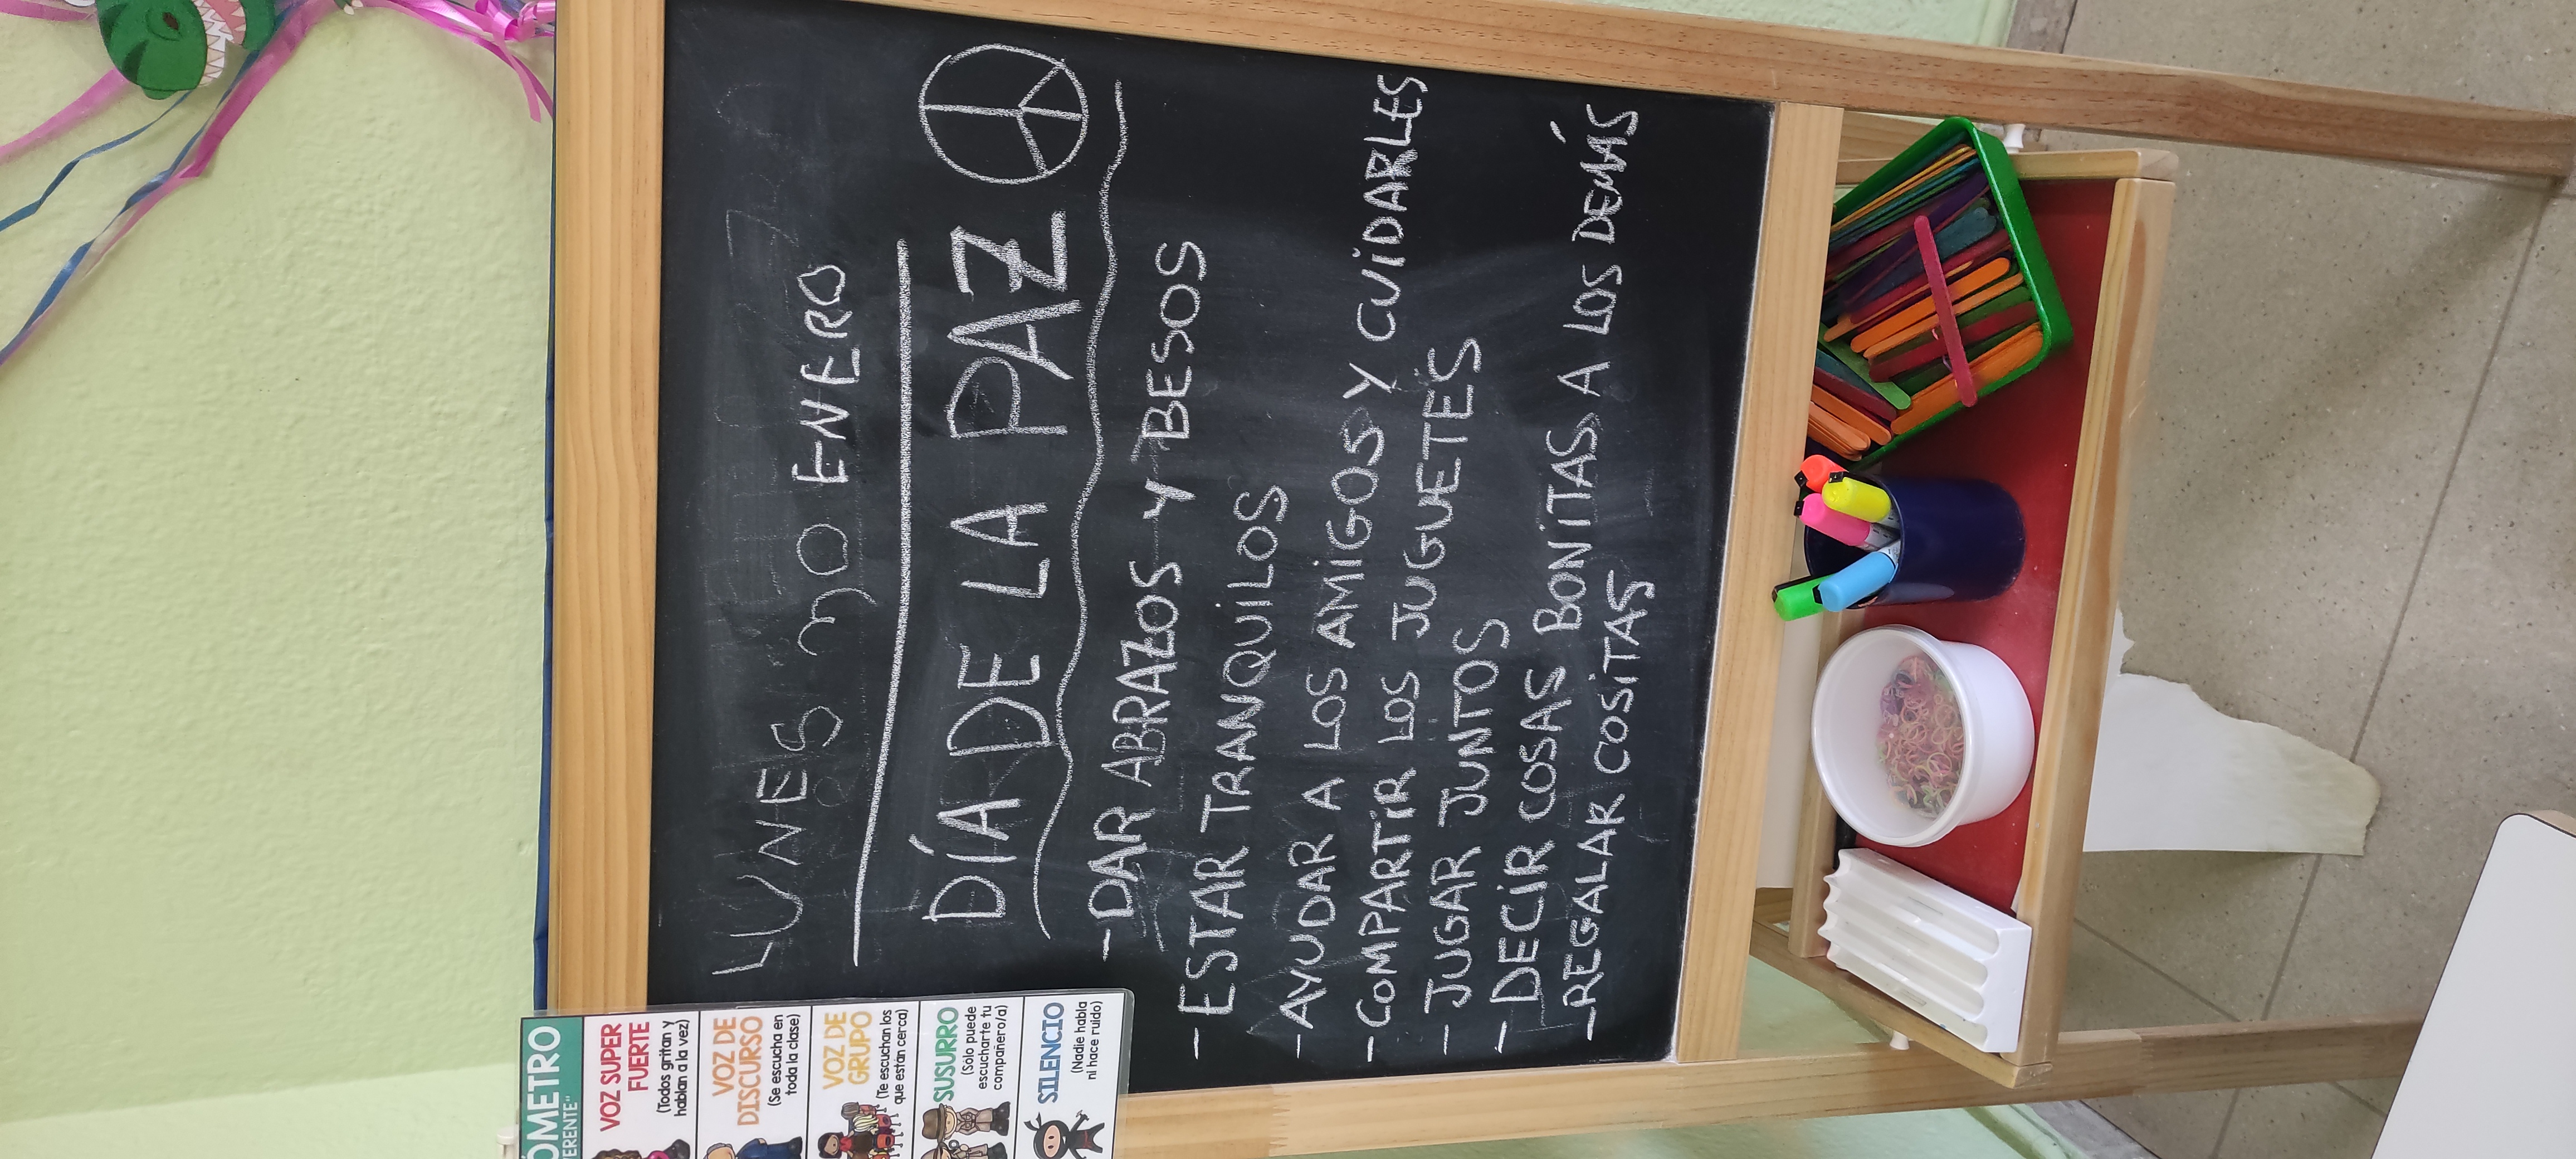 LUNES 30 ENERO
DÍA DE LA PAZ
-DAR ABRAZOS Y BESOS
-ESTAR TRANQUILOS
-AYUDAR A LOS AMIGOS Y CUIDARLES
-COMPARTIR LOS JUGUETES
-JUGAR JUNTOS
-DECIR COSAS BONITAS A LOS DEMÁS
-REGALAR COSITAS
VOZ SUPER
FUERTE
(Todos gritan y
hablan a la vez)
VOZ DE
DISCURSO
(Se escucha en
toda la clase)
VOZ DE
GRUPO
(Te escuchan los
que están cerca)
SUSURRO
(Solo puede
escucharte tu
compañero/a)
SILENCIO
(Nadie habla
ni hace ruido)